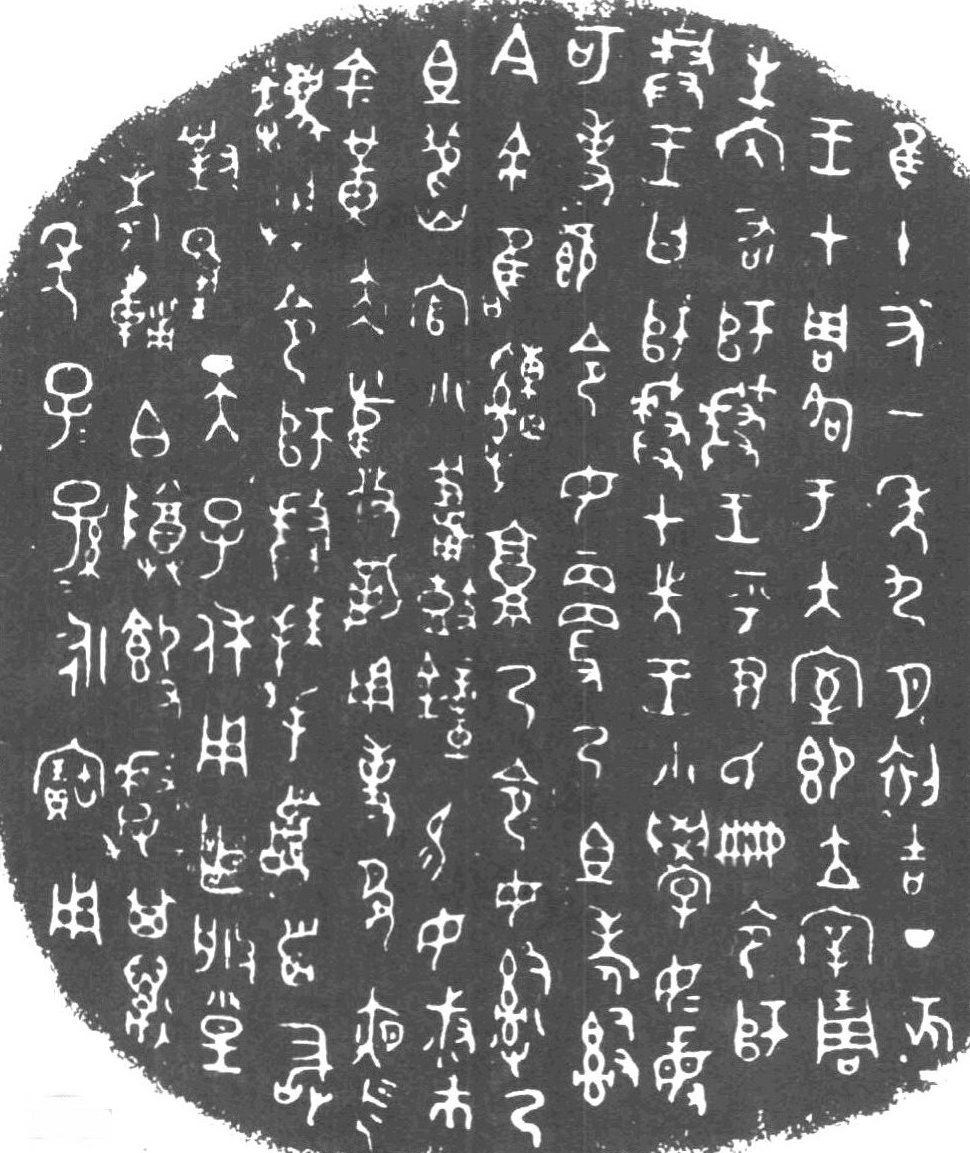 隹十又一年九月初吉丁亥
王才周各于大室即立宰琱
生內右師𠭰王乎尹氏冊令師
𠭰王曰師𠭰才先王小學女敏
可事既令女更乃且考𤔲
今余隹𤕌𣪕乃令令女𤔲乃
且舊官小輔鼓鐘易女叔巿
金黃赤舄攸勒用事敬夙夜
勿灋朕令師𠭰拜手𩒨首敢
對揚天子休用乍朕皇
考輔白𣪘𠭰其萬
年子子孫孫永寶用